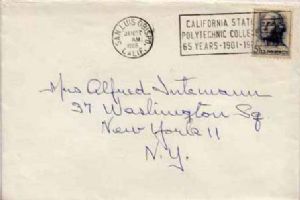 SAN LUIS OBISPO,
JAN
AM
1966
CALIF.
CALIFORNIA STATE
POLYTECHNIC COLLEGE
65 YEARS-1901-19
5¢
Mrs Alfred Intemann
37 Washington Sq
New York 11
N.Y.